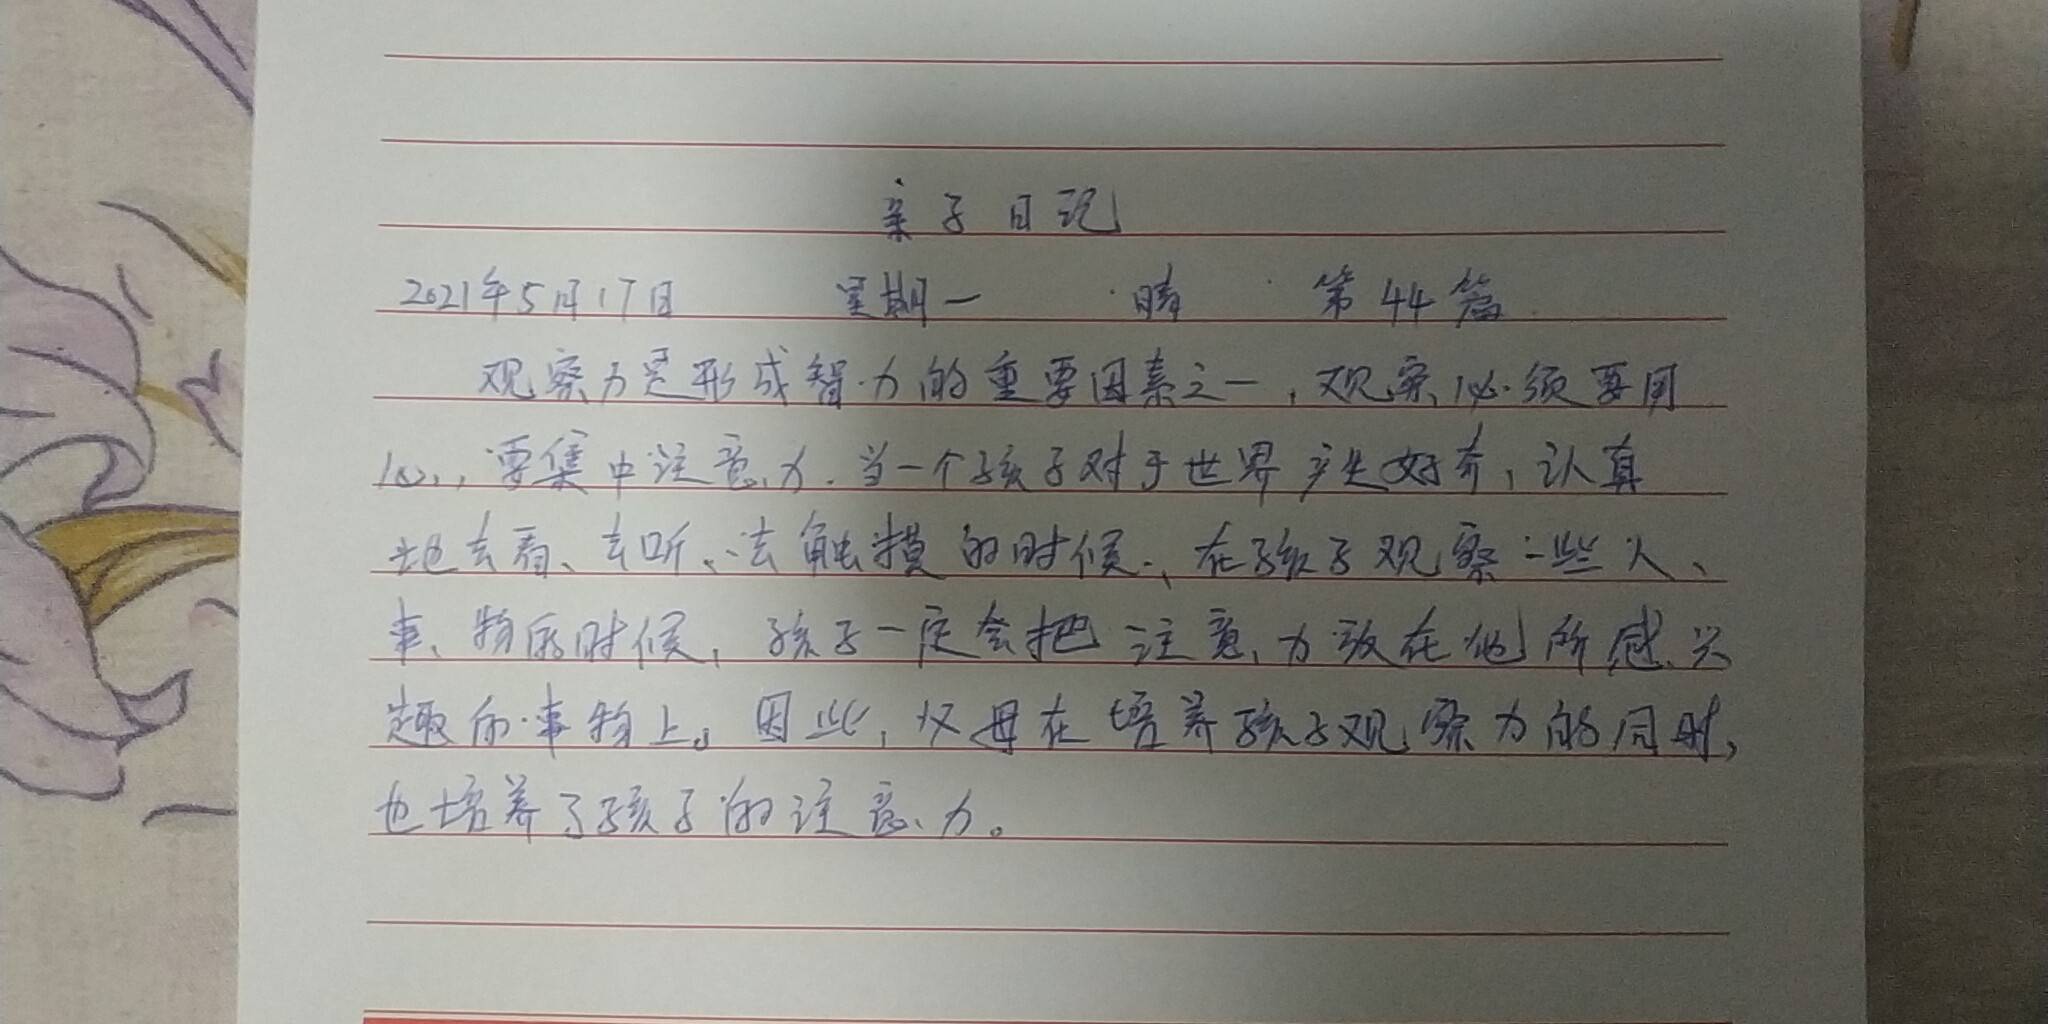 亲子日记
2021年5月17日 星期一 晴 第44篇
观察力是形成智力的重要因素之一,观察必须要用
心,要集中注意力.当一个孩子对于世界产生好奇,认真
地去看、去听、去触摸的时候、在孩子观察一些人、
事、物的时候,孩子一定会把注意力放在他所感兴
趣的事物上。因此,父母在培养孩子观察力的同时,
也培养了孩子的注意力。